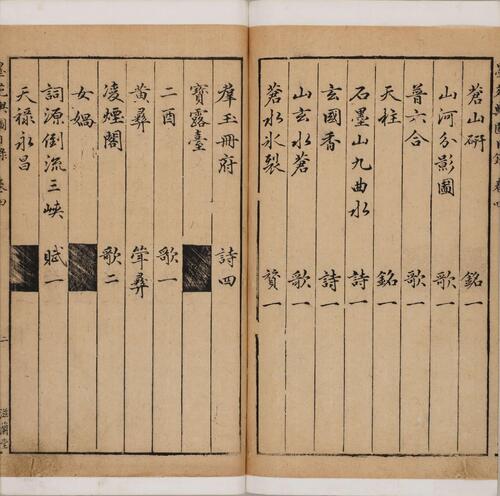 蒼山硏 銘一
山河分影圖 歌一
普六合 歌一
天柱 銘一
石墨山九曲水 詩一
玄國香 詩一
山玄水蒼 歌一
蒼水氷裂 贊一
羣玉冊府 詩四
寶露臺
二酉 歌一
黄彞 簟彞
凌煙閣 歌二
女媧
詞源倒流三峽 賦一
天祿永昌
卷四
二
滋蘭堂